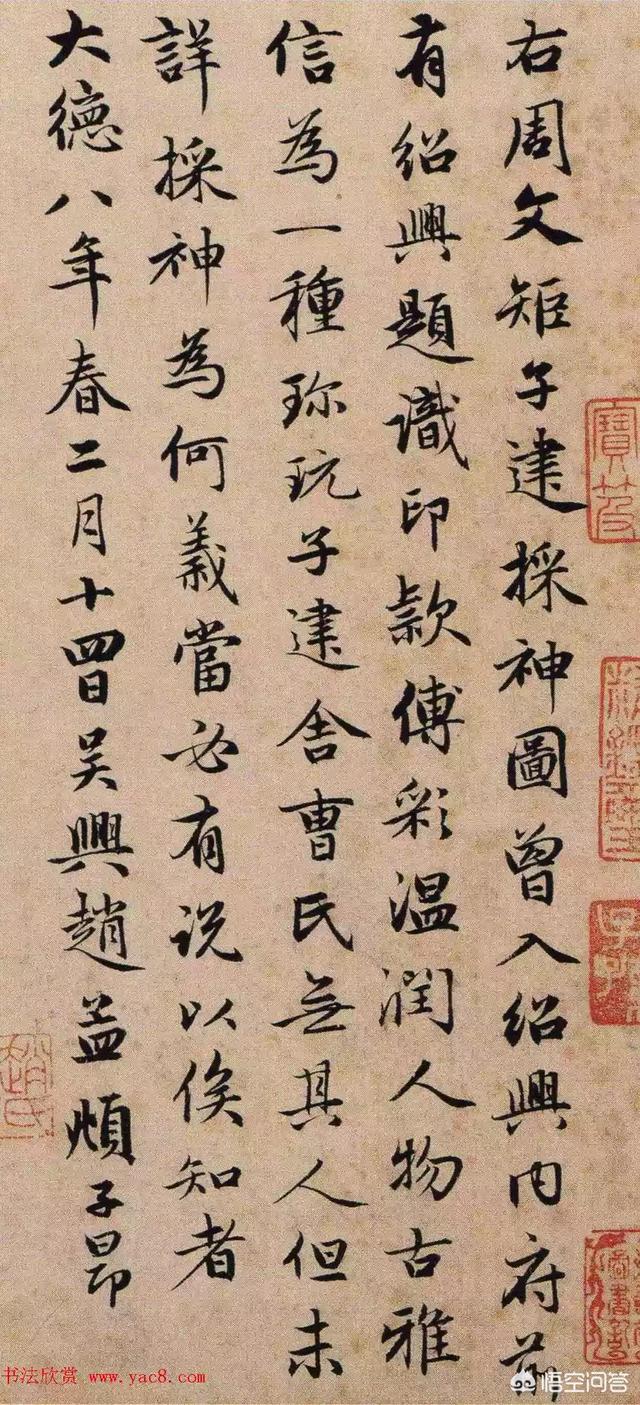 右周文矩子建採神圖曾入紹興内府前
有紹興題識印款傅彩温潤人物古雅
信為一種珎玩子建舍曹氏無其人但未
詳採神為何義當必有说以俟知者
大德八年春二月十四日吴興趙孟頫子昂
趙氏
书法欣赏 www.yac8.com
悟空问答